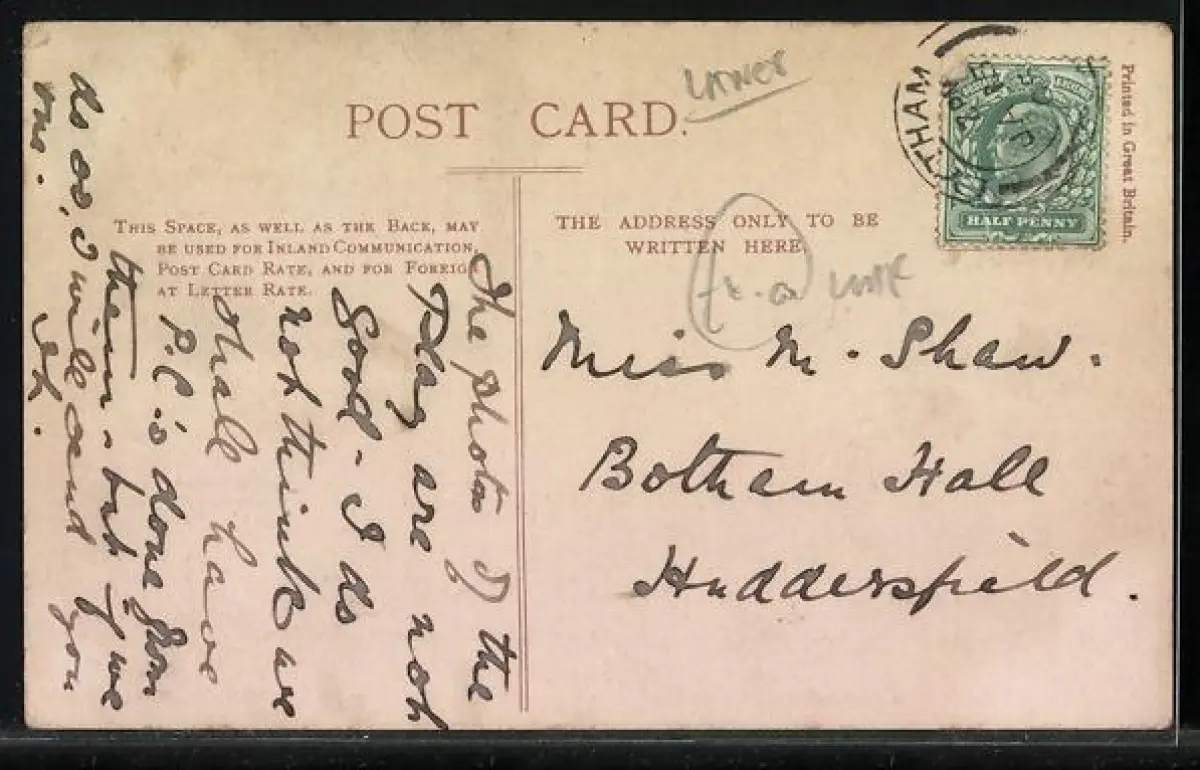 POST CARD.
Printed in Great Britain.
HALF PENNY
THIS SPACE, AS WELL AS THE BACK, MAY
BE USED FOR INLAND COMMUNICATION,
POST CARD RATE, AND FOR FOREIGN
AT LETTER RATE.
The photos of the
Play are not
Good - I do
not think we
shall have
P.C's done from
them - but if we
do so, I will send you
one.
THE ADDRESS ONLY TO BE
WRITTEN HERE.
Miss M. Shaw.
Botham Hall
Huddersfield.